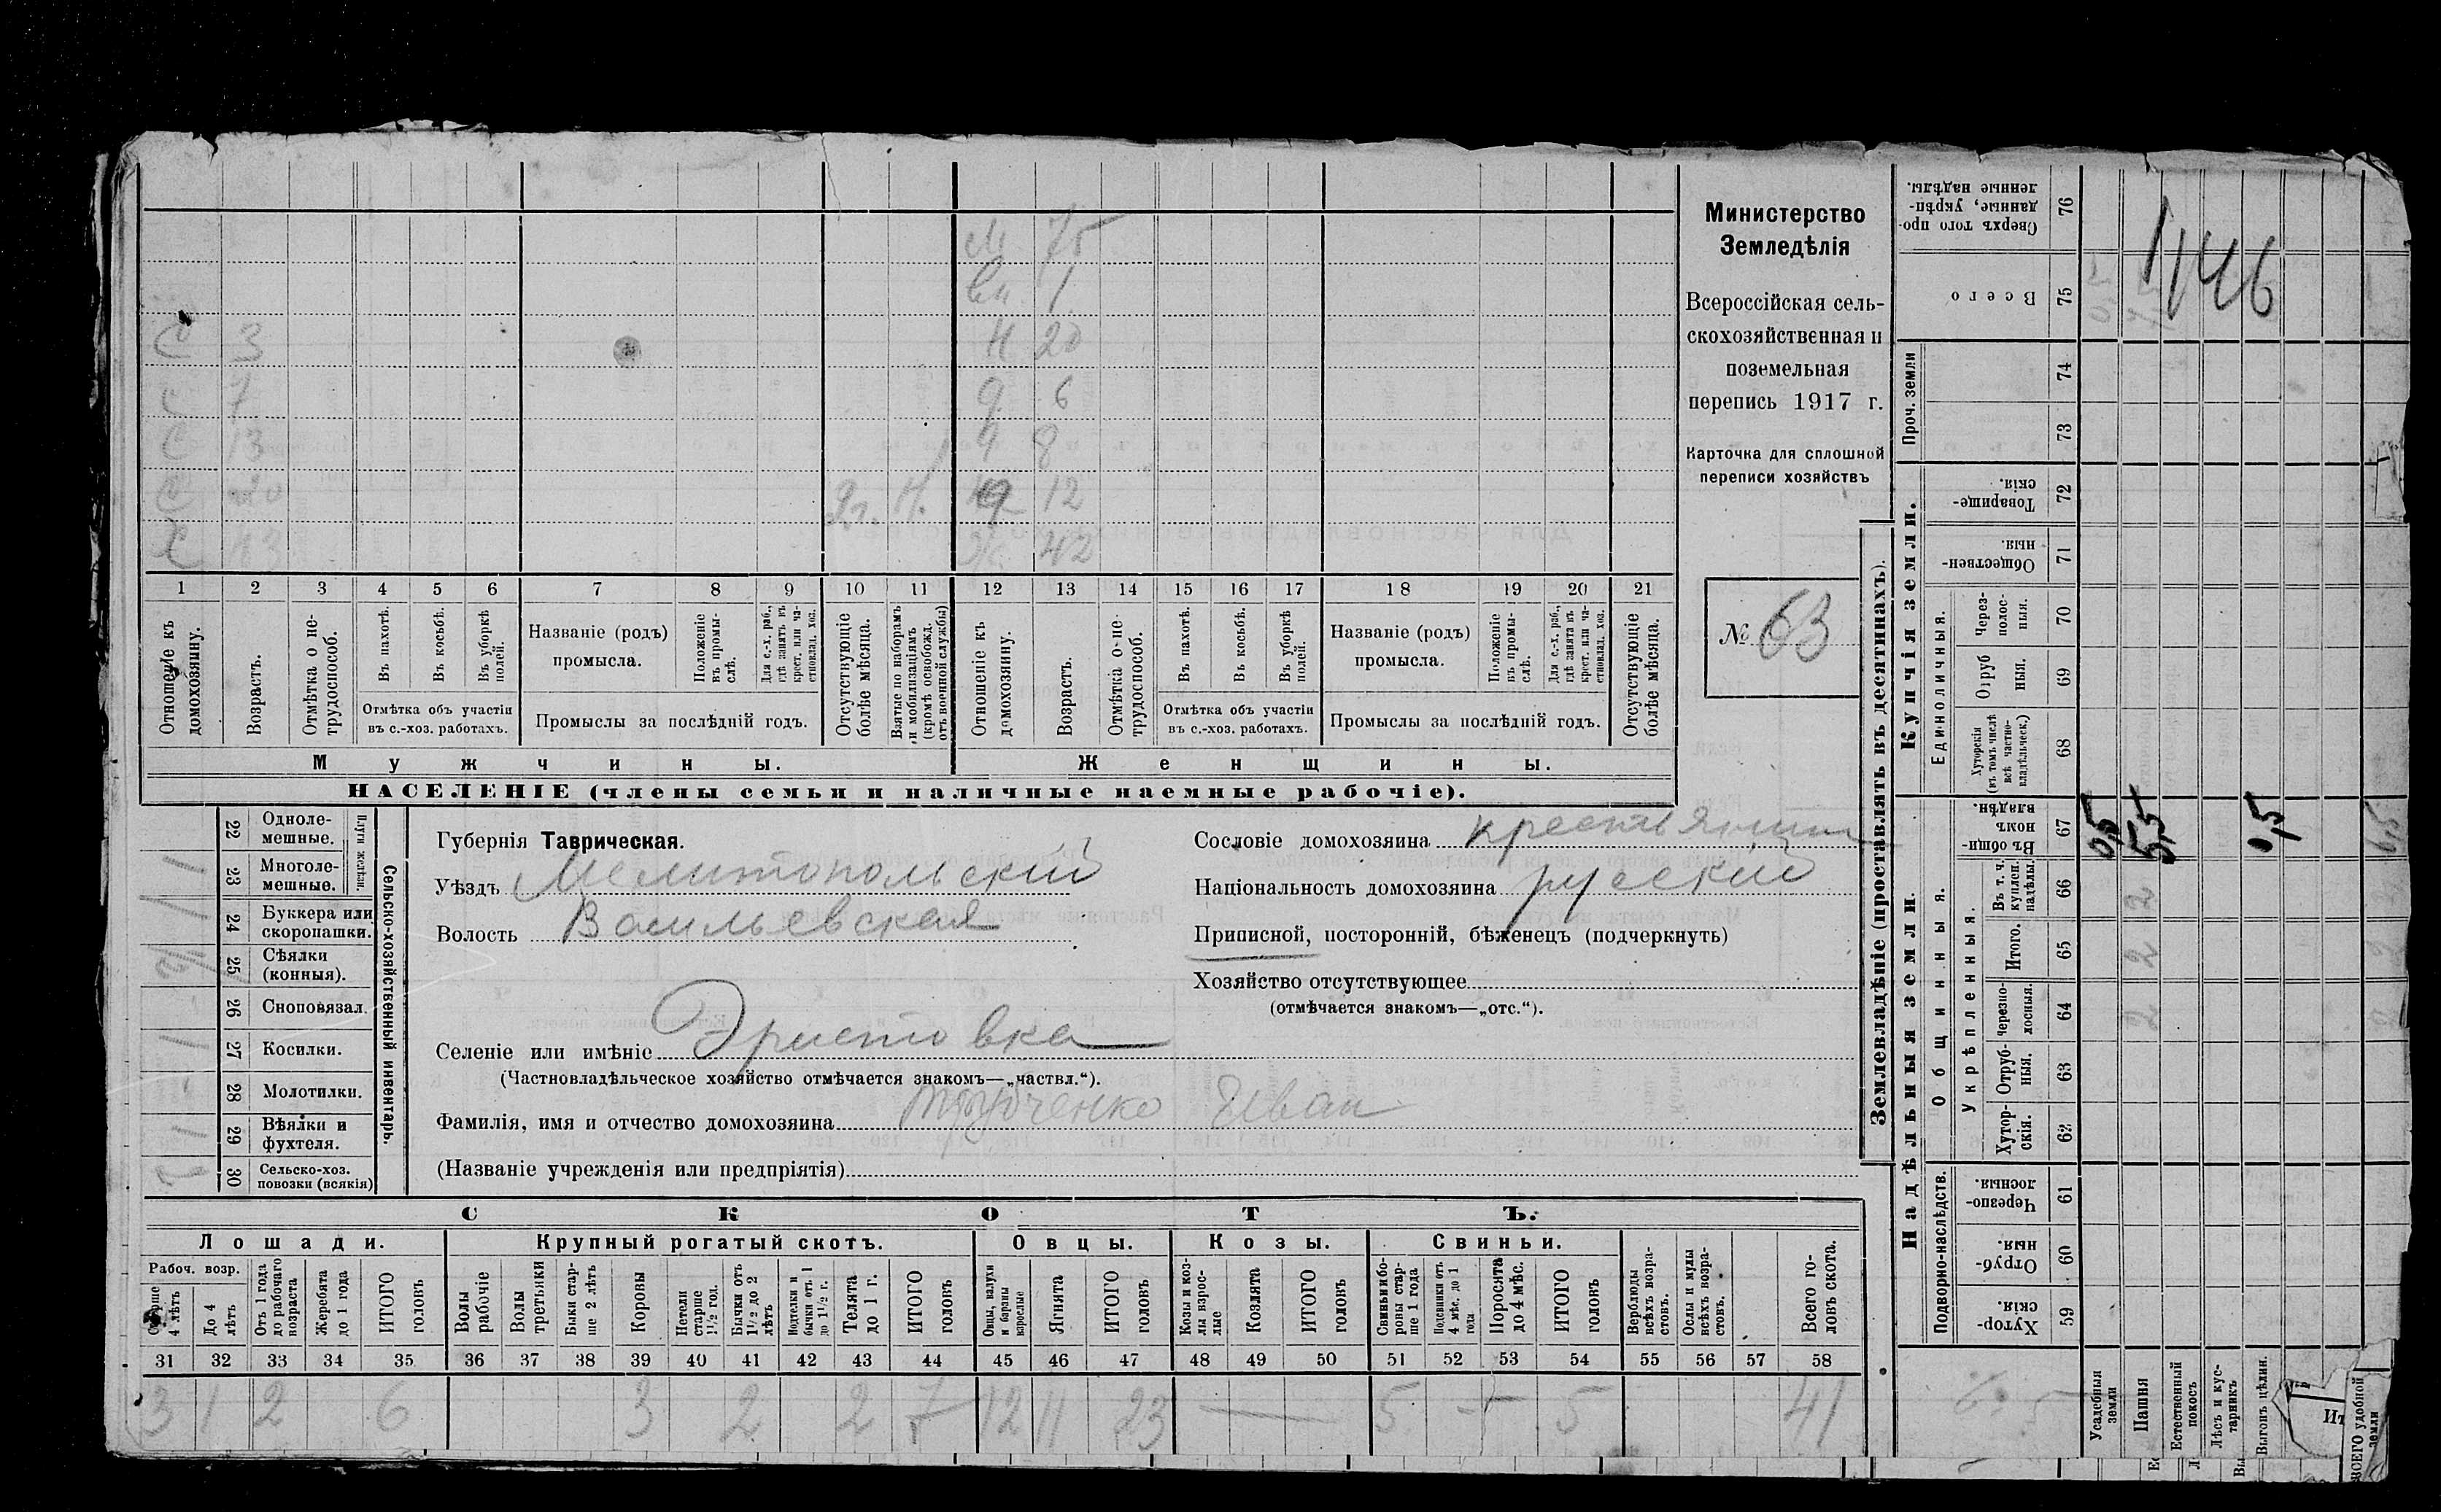 М 75
вн 1
С 3 Н 20
С 7 д 6
С 13 д 8
С 20 2г. Н. д 12
Х 43 Ж 42
1 2 3 4 5 6 7 8 9 10 11 12 13 14 15 16 17 18 19 20 21
Отношеніе къ домохозяину.
Возрастъ.
Отмѣтка о нетрудоспособ.
Въ пахотѣ.
Въ косьбѣ.
Въ уборкѣ полей.
Отмѣтка объ участіи
въ с.-хоз. работахъ.
Названіе (родъ)
промысла.
Положеніе въ промыслѣ.
Для с.-х. раб., гдѣ занятъ въ крест. или частновлад. хоз.
Промыслы за послѣдній годъ.
Отсутствующіе болѣе мѣсяца.
Взятые по наборамъ и мобилизаціямъ (кромѣ освобожд. отъ военной службы)
Отношеніе къ домохозяину.
Возрастъ.
Отмѣтка о нетрудоспособ.
Въ пахотѣ.
Въ косьбѣ.
Въ уборкѣ полей.
Отмѣтка объ участіи
въ с.-хоз. работахъ.
Названіе (родъ)
промысла.
Положеніе въ промыслѣ.
Для с.-х. раб., гдѣ занята въ крест. или частновлад. хоз.
Промыслы за послѣдній годъ.
Отсутствующіе болѣе мѣсяца.
Мужчины. Женщины.
НАСЕЛЕНІЕ (члены семьи и наличные наемные рабочіе).
Министерство
Земледѣлія
Всероссійская сель-
скохозяйственная и
поземельная
перепись 1917 г.
Карточка для сплошной
переписи хозяйствъ
№ 63
22 Одноле-
мешные.
23 Многоле-
мешные.
Плуги желѣзн.
24 Буккера или
скоропашки.
25 Сѣялки
(конныя).
26 Сноповязал.
27 Косилки.
28 Молотилки.
29 Вѣялки и
фухтеля.
30 Сельско-хоз.
повозки (всякія)
Сельско-хозяйственный инвентарь.
Губернія Таврическая.
Уѣздъ Мелитопольскій
Волость Васильевская
Селеніе или имѣніе Эристовка
(Частновладѣльческое хозяйство отмѣчается знакомъ—„частвл.“).
Фамилія, имя и отчество домохозяина Трубченко Иван
(Названіе учрежденія или предпріятія)
Сословіе домохозяина крестьянин
Національность домохозяина русскій
Приписной, посторонній, бѣженецъ (подчеркнуть)
Хозяйство отсутствующее
(отмѣчается знакомъ—„отс.“).
СКОТЪ.
Лошади. Крупный рогатый скотъ. Овцы. Козы. Свиньи.
Рабоч. возр.
Старше 4 лѣтъ
До 4 лѣтъ
Отъ 1 года до рабочаго возраста
Жеребята до 1 года
ИТОГО головъ
Волы рабочіе
Волы третьяки
Быки старше 2 лѣтъ
Коровы
Нетели старше 1½ год.
Бычки отъ 1½ до 2 лѣтъ
Подтелки и бычки отъ 1 до 1½ г.
Телята до 1 г.
ИТОГО головъ
Овцы, валухи и бараны взрослые
Ягнята
ИТОГО головъ
Козы и козлы взрослые
Козлята
ИТОГО головъ
Свиньи и боровы старше 1 года
Подсвинки отъ 4 мѣс. до 1 года
Поросята до 4 мѣс.
ИТОГО головъ
Верблюды всѣхъ возрастовъ.
Ослы и мулы всѣхъ возрастовъ.
Всего головъ скота.
31 32 33 34 35 36 37 38 39 40 41 42 43 44 45 46 47 48 49 50 51 52 53 54 55 56 57 58
3 1 2 6 3 2 2 7 12 11 23 — 5 — 5 41
Землевладѣніе (проставлять въ десятинахъ).
Сверхъ того проданные, укрѣпленные надѣлы. 76
Всего 75
1146
Проч. земли
74
73
Купчія земли.
Товарищескія. 72
Общественныя. 71
Единоличныя.
Черезполосныя. 70
Отрубныя. 69
Хуторскія (въ томъ числѣ всѣ частновладѣльческ.) 68
Надѣльныя земли.
Общинныя.
Въ общинномъ владѣн. 67
0,5 5,5 0,5
Укрѣпленныя.
Въ т. ч. куплен. надѣлы. 66
2
Итого. 65
2
Черезполосныя. 64
2
Отрубныя. 63
Хуторскія. 62
Подворно-наслѣдств.
Черезполосныя. 61
Отрубныя. 60
Хуторскія. 59
Усадебныя земли
Пашня
Естественный покосъ
Лѣсъ и кустарникъ
Выгонъ цѣлин.
ВСЕГО удобной земли